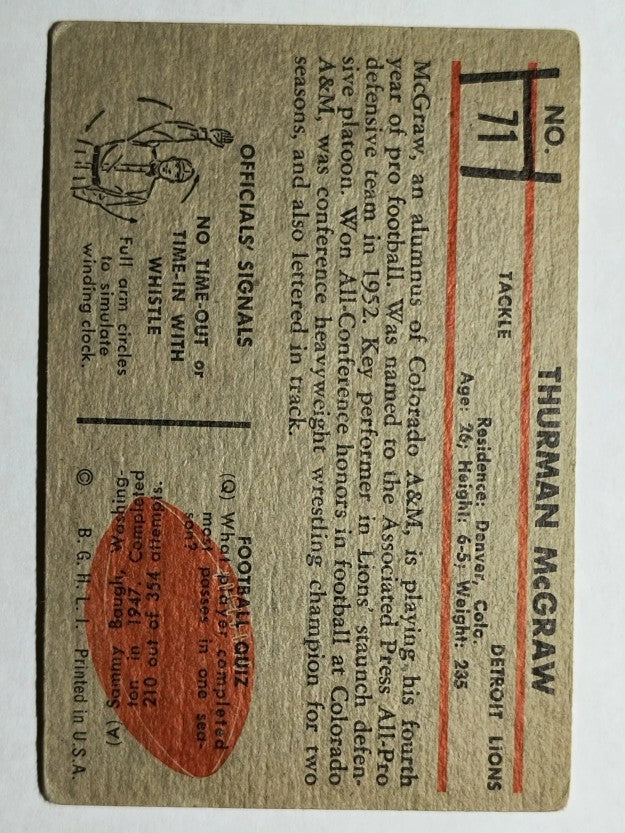 NO. 71
THURMAN McGRAW
TACKLE
DETROIT LIONS
Residence: Denver, Colo.
Age: 26; Height: 6-5; Weight: 235
McGraw, an alumnus of Colorado A&M, is playing his fourth
year of pro football. Was named to the Associated Press All-Pro
defensive team in 1952. Key performer in Lions' staunch defen-
sive platoon. Won All-Conference honors in football at Colorado
A&M, was conference heavyweight wrestling champion for two
seasons, and also lettered in track.
OFFICIALS' SIGNALS
NO TIME-OUT or
TIME-IN WITH
WHISTLE
Full arm circles
to simulate
winding clock.
FOOTBALL QUIZ
(Q) What player completed
most passes in one sea-
son?
(A) Sammy Baugh, Washing-
ton in 1947. Completed
210 out of 354 attempts.
© B. G. H. L. I. Printed in U.S.A.